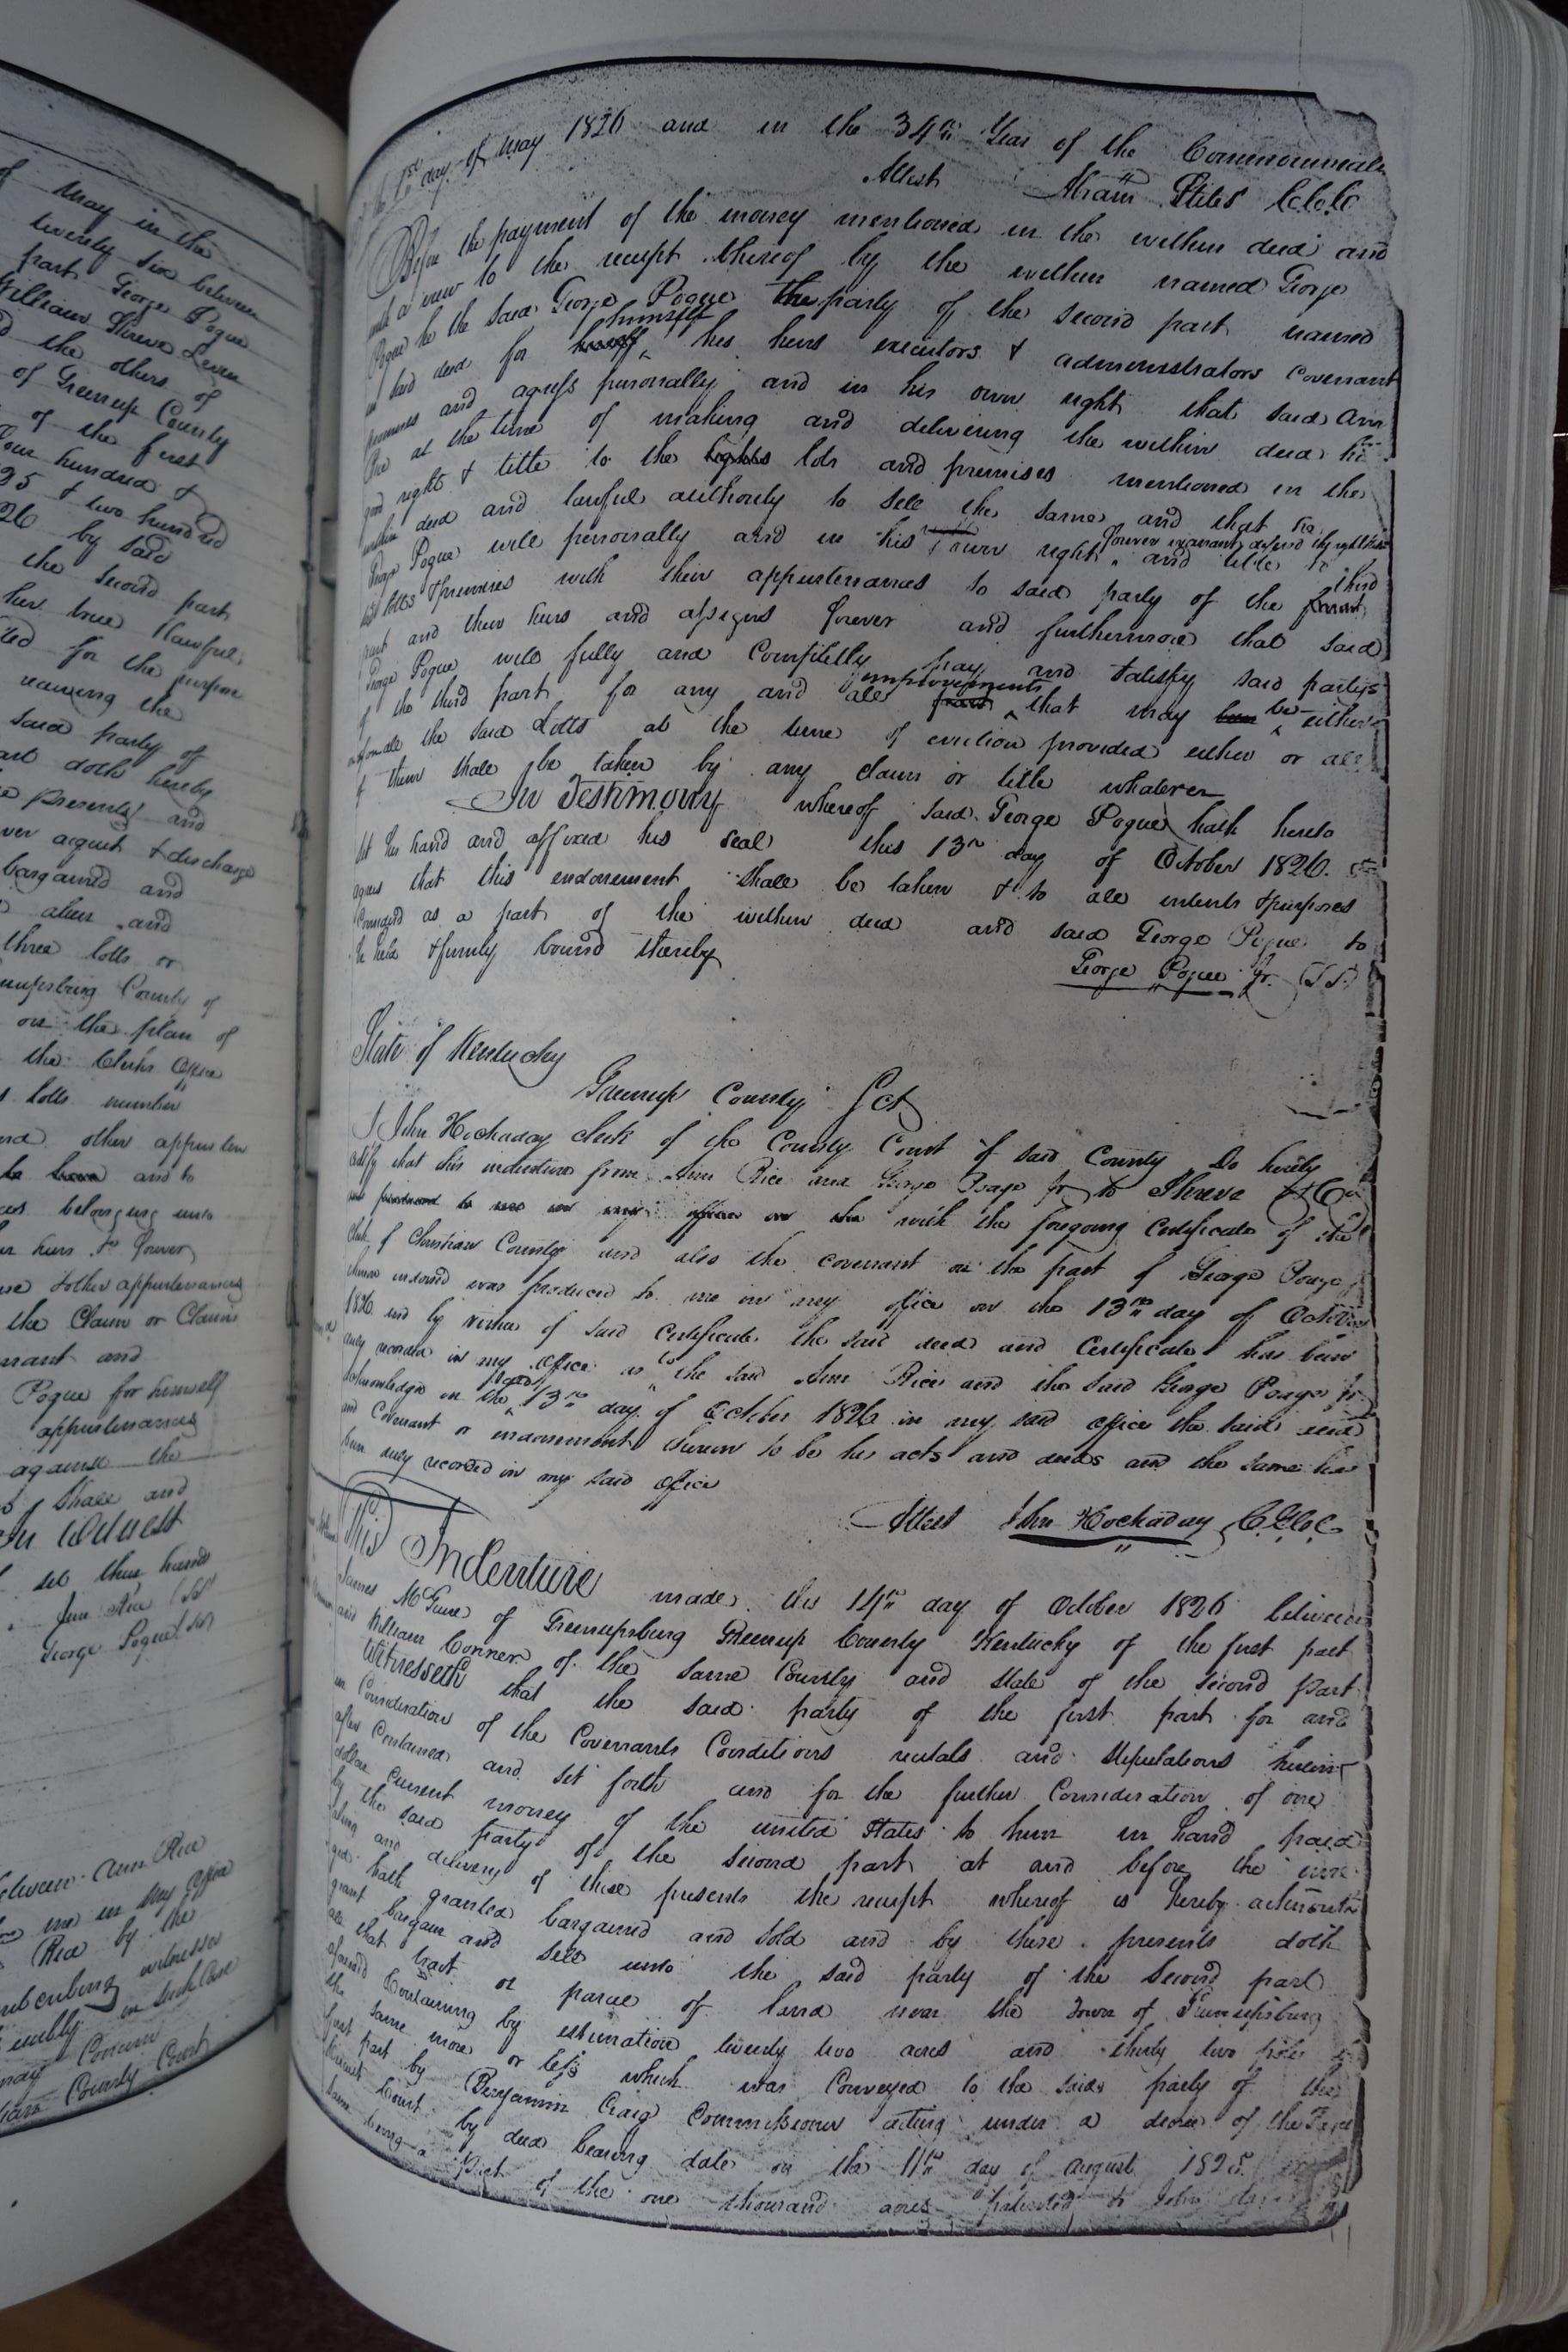 of May in the
twenty six between
part George Pogue
William Shreve Leven
the others of
of Greenup County
of the first
four hundred &
35 & two hundred
26 by said
the second part
her true & lawful
for the purpose
the
said party of
part doth hereby
presents and
ver acquit & discharge
bargained and
alien and
three lotts or
County of
on the plan of
the Clerks Office
lotts number
and other appurten
and to
belonging unto
heirs &c forever
& other appurtenances
the Claim or Claims
warrant and
Pogue for himself
appurtenances
against the
shall and
In Witness
set their hands
Ann Rice (SS)
George Pogue (SS)
between Ann Rice
me in my office
Rice by the
subscribing witnesses
in such case
may Concern
County Court
the 1st day of May 1826 and in the 34th Year of the Commonwealth
Attest Abram Stites C.C.C.C
Before the payment of the money mentioned in the within deed and
with a view to the receipt thereof by the within named George
Pogue he the said George Pogue the party of the second part named
in said deed for himself his heirs executors & administrators covenant
promises and agrees personally and in his own right that said Ann
Rice at the time of making and delivering the within deed
good right & title to the lots and premises mentioned in the
within deed and lawful authority to sell the same and that he
George Pogue will personally and in his own right forever warrant & defend the right and title to
said lotts & premises with their appurtenances to said party of the third
part and their heirs and assigns forever and furthermore that said
George Pogue will fully and Completely pay and satisfy said partys
of the third part for any and all improvements that may be either
the said Lotts at the time of eviction provided either or all
of them shall be taken by any claim or title whatever
In Testimony whereof said George Pogue hath hereto
set his hand and affixed his seal this 13th day of October 1826.
agrees that this endorsement shall be taken & to all intents & purposes
Considered as a part of the within deed and said George Pogue to
be held & firmly bound thereby
George Pogue Jr. (SS)
State of Kentucky
Greenup County Sct
I John Hockaday clerk of the County Court of said County Do hereby
certify that this indenture from Ann Rice and George Poage Jr to Shreve & Co
was with the foregoing Certificate of the
clk of Christian County and also the covenant on the part of George Poage Jr
thereon indorsed was produced to me in my office on the 13th day of October
1826. and by virtue of said Certificate the said deed and Certificate has been
duly recorded in my office as to the said Ann Rice and the said George Poage Jr
acknowledged on the 13th day of October 1826 in my said office the said deed
and Covenant or indorsement thereon to be his acts and deeds and the same has
been duly recorded in my said office
Attest John Hockaday C.G.C.C.
This Indenture made this 14th day of October 1826 between
James McGuire of Greenupsburg Greenup County Kentucky of the first part
and William Conner of the same County and State of the second part
Witnesseth that the said party of the first part for and
in Consideration of the Covenants Conditions recitals and stipulations herein
after Contained and set forth and for the further Consideration of one
dollar current money of the united States to him in hand paid
by the said party of the second part at and before the
and delivery of these presents the receipt whereof is hereby acknowled
ged hath granted bargained and sold and by these presents doth
grant bargain and sell unto the said party of the Second part
all that tract or parcel of land near the Town of Greenupsburg
aforesaid Containing by estimation twenty two acres and thirty two poles be
the same more or less which was Conveyed to the said party of the
first part by Benjamin Craig Commissioner acting under a decree of the
Circuit Court by deed bearing date on the 11th day of August 1825.
same being a part of the one thousand acres patented to John